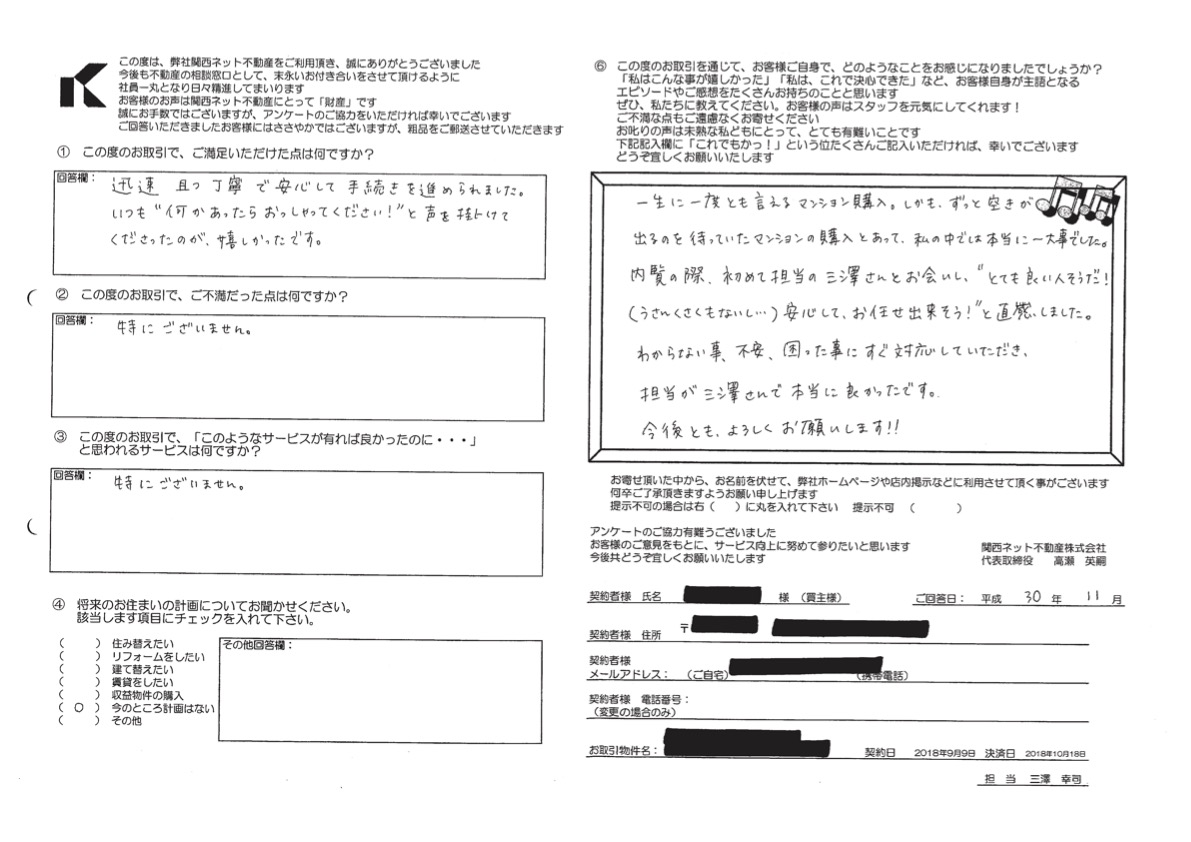 この度は、弊社関西ネット不動産をご利用頂き、誠にありがとうございました
今後も不動産の相談窓口として、末永いお付き合いをさせて頂けるように
社員一丸となり日々精進してまいります
お客様のお声は関西ネット不動産にとって「財産」です
誠にお手数ではございますが、アンケートのご協力をいただければ幸いでございます
ご回答いただきましたお客様にはささやかではございますが、粗品をご郵送させていただきます
① この度のお取引で、ご満足いただけた点は何ですか？
回答欄：
迅速 且つ 丁寧 で 安心して 手続きを 進められました。
いつも “何かあったら おっしゃってください！” と 声を 掛けて
くださったのが、嬉しかったです。
② この度のお取引で、ご不満だった点は何ですか？
回答欄：
特にございません。
③ この度のお取引で、「このようなサービスが有れば良かったのに・・・」
と思われるサービスは何ですか？
回答欄：
特にございません。
④ 将来のお住まいの計画についてお聞かせください。
該当します項目にチェックを入れて下さい。
（　　）住み替えたい
（　　）リフォームをしたい
（　　）建て替えたい
（　　）賃貸をしたい
（　　）収益物件の購入
（ ○ ）今のところ計画はない
（　　）その他
その他回答欄：
⑥ この度のお取引を通じて、お客様ご自身で、どのようなことをお感じになりましたでしょうか？
「私はこんな事が嬉しかった」「私は、これで決心できた」など、お客様自身が主語となる
エピソードやご感想をたくさんお持ちのことと思います
ぜひ、私たちに教えてください。お客様の声はスタッフを元気にしてくれます！
ご不満な点もご遠慮なくお寄せください
お叱りの声は未熟な私どもにとって、とても有難いことです
下記記入欄に「これでもかっ！」という位たくさんご記入いただければ、幸いでございます
どうぞ宜しくお願いいたします
一生に一度とも言えるマンション購入。しかも、ずっと空きが
出るのを待っていたマンションの購入とあって、私の中では本当に一大事でした。
内覧の際、初めて担当の三澤さんとお会いし、“とても良い人そうだ！
（うさんくさくもないし…）安心して、お任せ出来そう！” と直感しました。
わからない事、不安、困った事にすぐ対応していただき、
担当が三澤さんで本当に良かったです。
今後とも、よろしくお願いします!!
お寄せ頂いた中から、お名前を伏せて、弊社ホームページや店内掲示などに利用させて頂く事がございます
何卒ご了承頂きますようお願い申し上げます
提示不可の場合は右（　　）に丸を入れて下さい　提示不可　（　　　）
アンケートのご協力有難うございました
お客様のご意見をもとに、サービス向上に努めて参りたいと思います
今後共どうぞ宜しくお願いいたします
関西ネット不動産株式会社
代表取締役　高瀬 英嗣
契約者様 氏名　様（買主様）　ご回答日： 平成 30 年 11 月
契約者様 住所　〒
契約者様
メールアドレス：（ご自宅）（携帯電話）
契約者様 電話番号：
（変更の場合のみ）
お取引物件名：　契約日 2018年9月9日 決済日 2018年10月18日
担 当 三澤 幸司